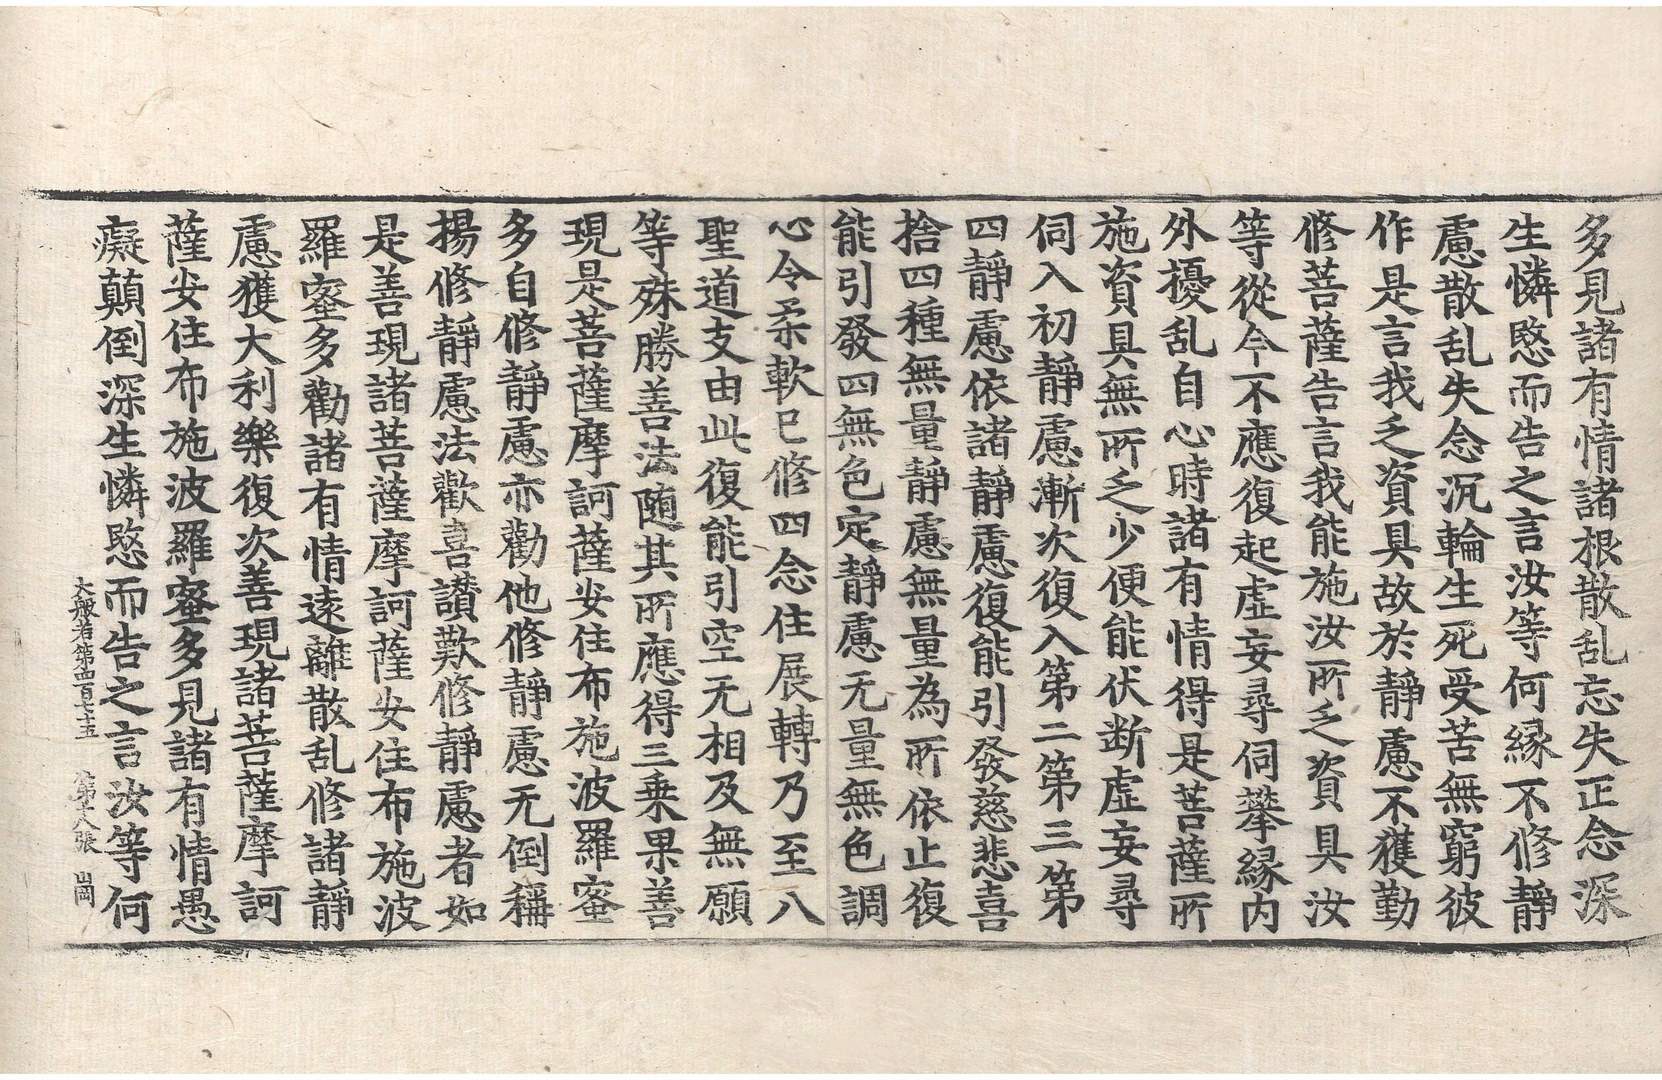 多見諸有情諸根散乱忘失正念深
生憐愍而告之言汝等何縁不修靜
慮散乱失念沉輪生死受苦無窮彼
作是言我乏資具故於靜慮不獲勤
修菩薩告言我能施汝所乏資具汝
等從今不應復起虛妄尋伺攀縁内
外擾乱自心時諸有情得是菩薩所
施資具無所乏少便能伏断虛妄尋
伺入初靜慮漸次復入第二第三第
四靜慮依諸靜慮復能引發慈悲喜
捨四種無量靜慮無量為所依止復
能引發四無色定靜慮无量無色調
心令柔軟已修四念住展轉乃至八
聖道支由此復能引空无相及無願
等殊勝善法随其所應得三乗果善
現是菩薩摩訶薩安住布施波羅蜜
多自修靜慮亦勸他修靜慮无倒稱
揚修靜慮法歡喜讃歎修靜慮者如
是善現諸菩薩摩訶薩安住布施波
羅蜜多勸諸有情遠離散乱修諸靜
慮獲大利樂復次善現諸菩薩摩訶
薩安住布施波羅蜜多見諸有情愚
癡顛倒深生憐愍而告之言汝等何
大般若第四百七十五 第十八張 山岡